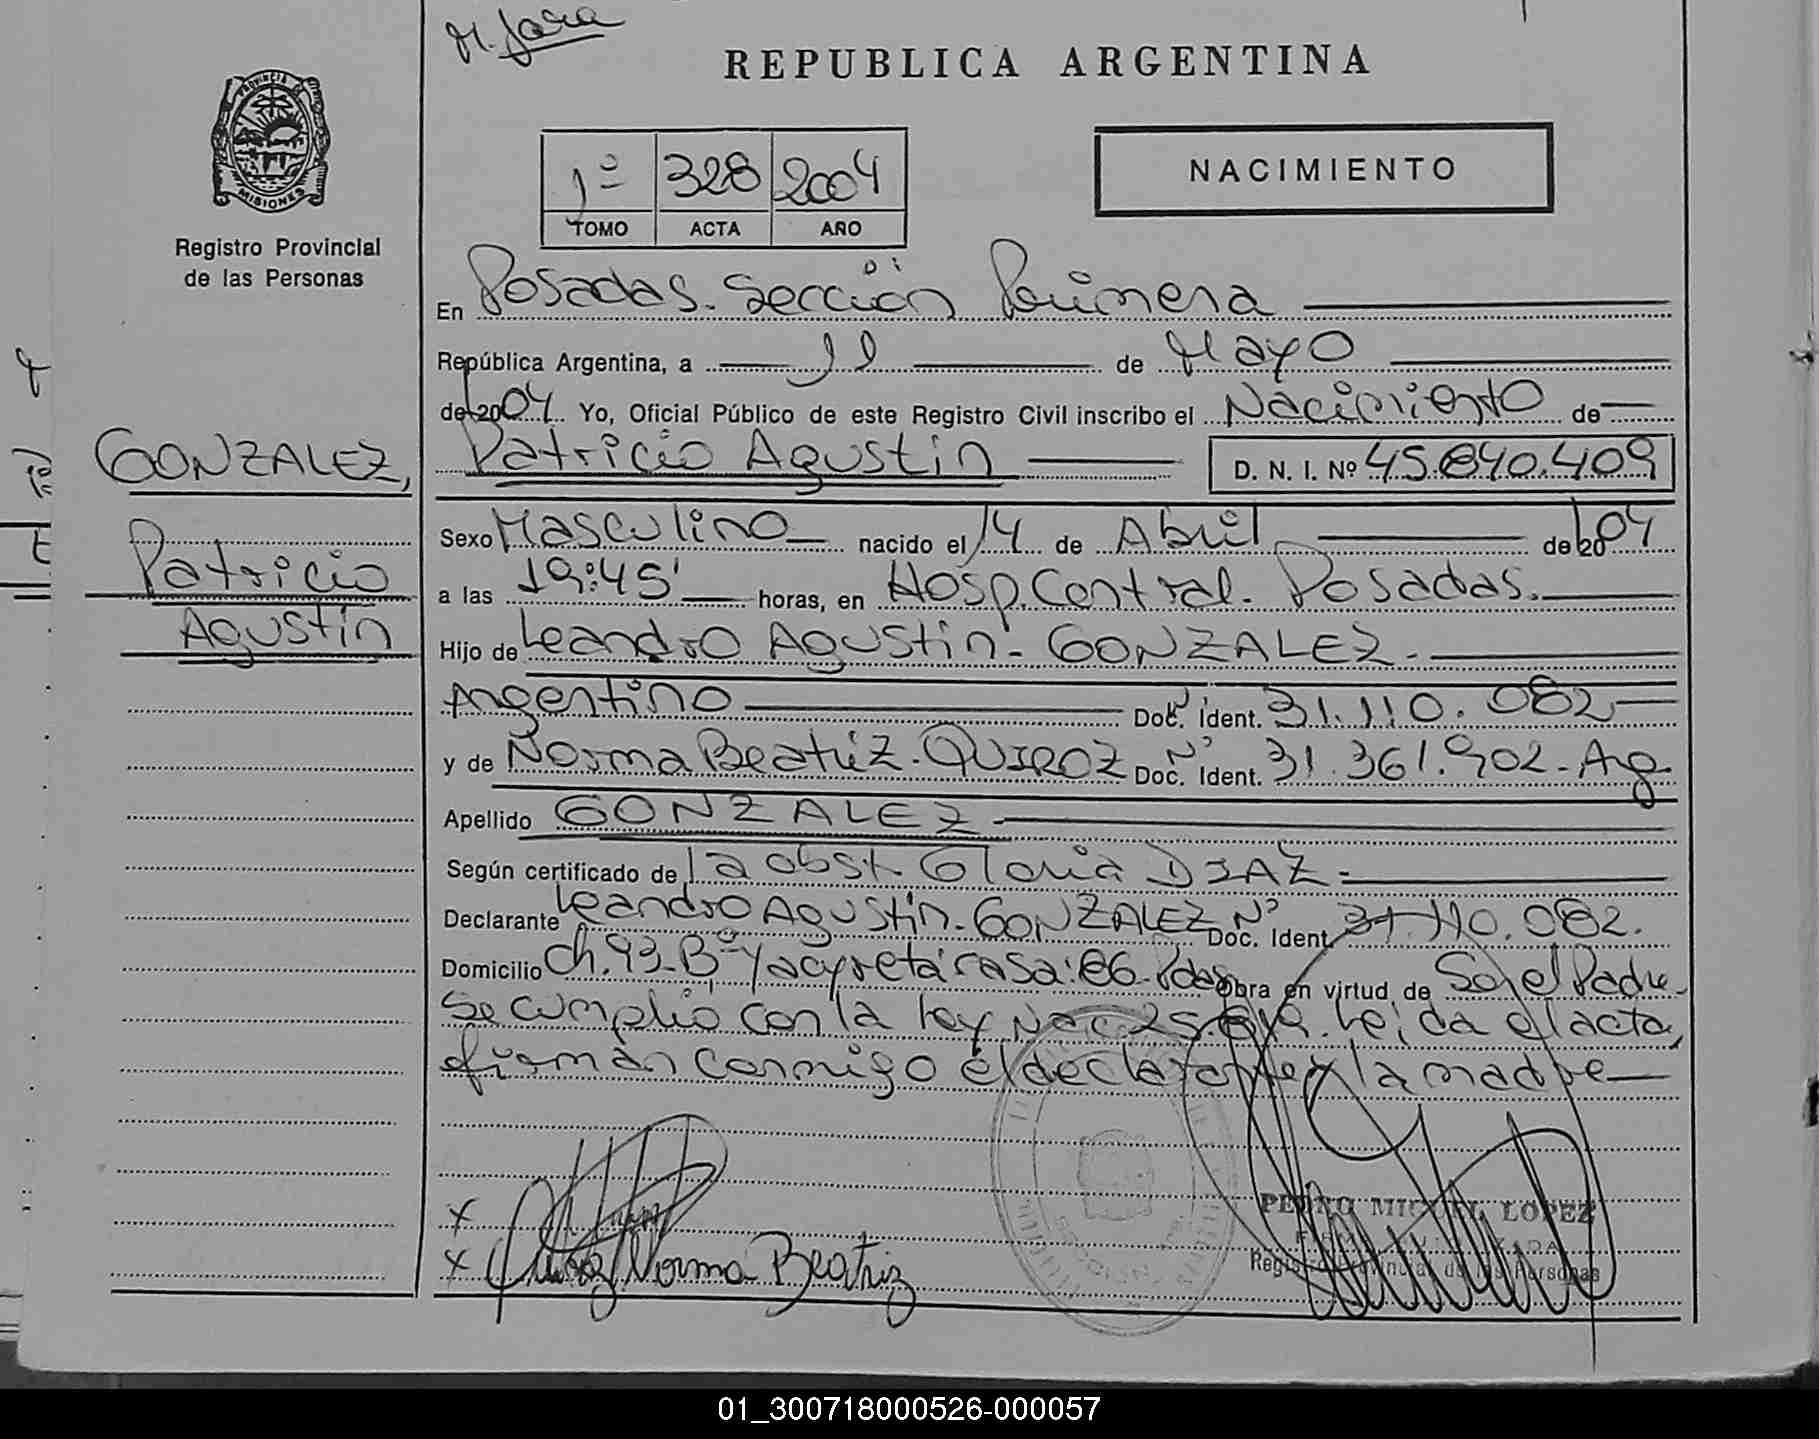 M. Jara
REPUBLICA ARGENTINA
PROVINCIA DE
MISIONES
Registro Provincial
de las Personas
1º 328 2004
TOMO ACTA AÑO
NACIMIENTO
En Posadas. Sección Primera
República Argentina, a 11 de Mayo
de 2004 Yo, Oficial Público de este Registro Civil inscribo el Nacimiento de
Patricio Agustín D. N. I. Nº 45.840.409
GONZALEZ,
Patricio
Agustín
Sexo Masculino nacido el 14 de Abril de 2004
a las 19:45' horas, en Hosp. Central. Posadas.
Hijo de Leandro Agustín. GONZALEZ.
Argentino Doc. Ident. Nº 31.110.082
y de Norma Beatriz. QUIROZ Doc. Ident. Nº 31.361.902 - Arg
Apellido GONZALEZ
Según certificado de la obst. Gloria DIAZ.
Declarante Leandro Agustín. GONZALEZ Doc. Ident. Nº 31.110.082.
Domicilio Ch. 93. Bº Yacyretá casa: 86. Pdas Obra en virtud de Ser el Padre
Se cumplió con la Ley Nac. Leída el acta,
firman conmigo el declarante y la madre
x
x Quiroz Norma Beatriz
PEDRO MIGUEL LOPEZ
Registro Provincial de las Personas
01_300718000526-000057